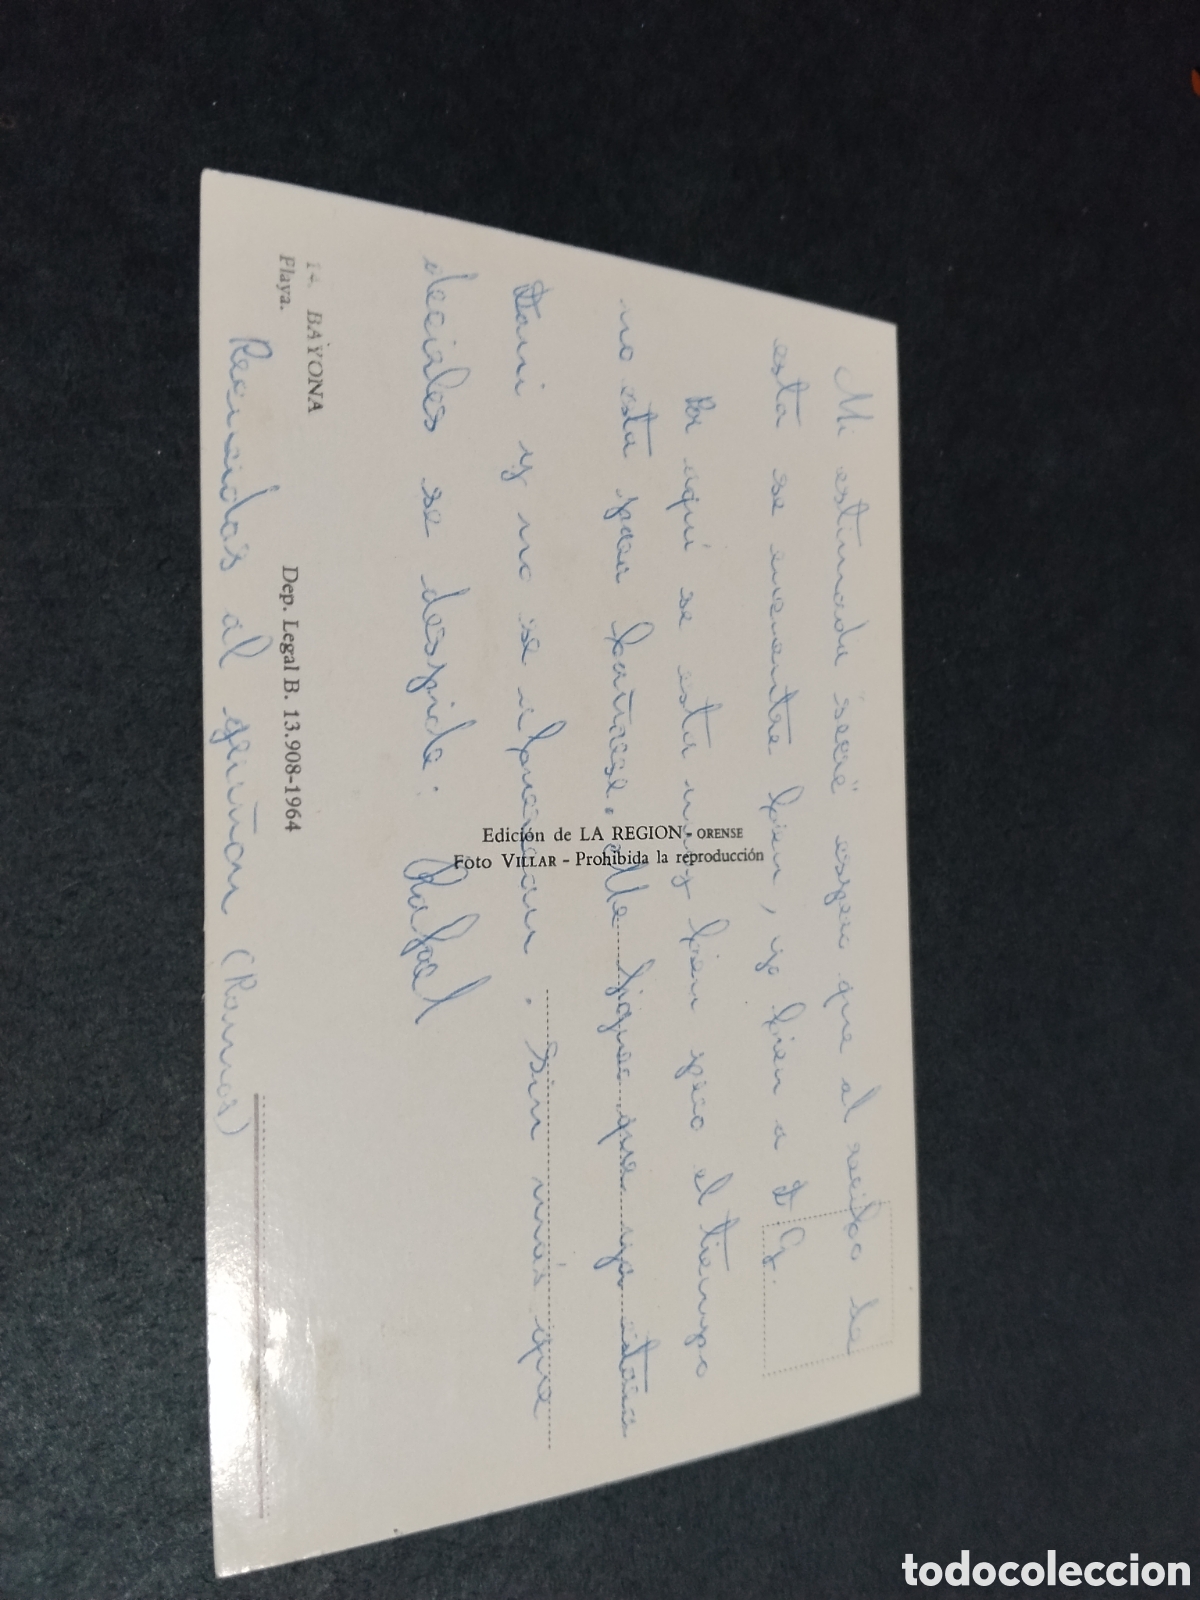 Mi estimada "secre" espero que al recibo de
esta se encuentre bien, yo bien a D G.
Por aquí se esta muy bien pero el tiempo
no esta para bañarse. Me figuro que ya estara
Dani y no se aburriran. Sin más que
decirles se despide:
Rafael
14. BAYONA
Playa.
Dep. Legal B. 13.908-1964
Recuerdos al (Ramos)
Edición de LA REGION - ORENSE
Foto VILLAR - Prohibida la reproducción
todocoleccion